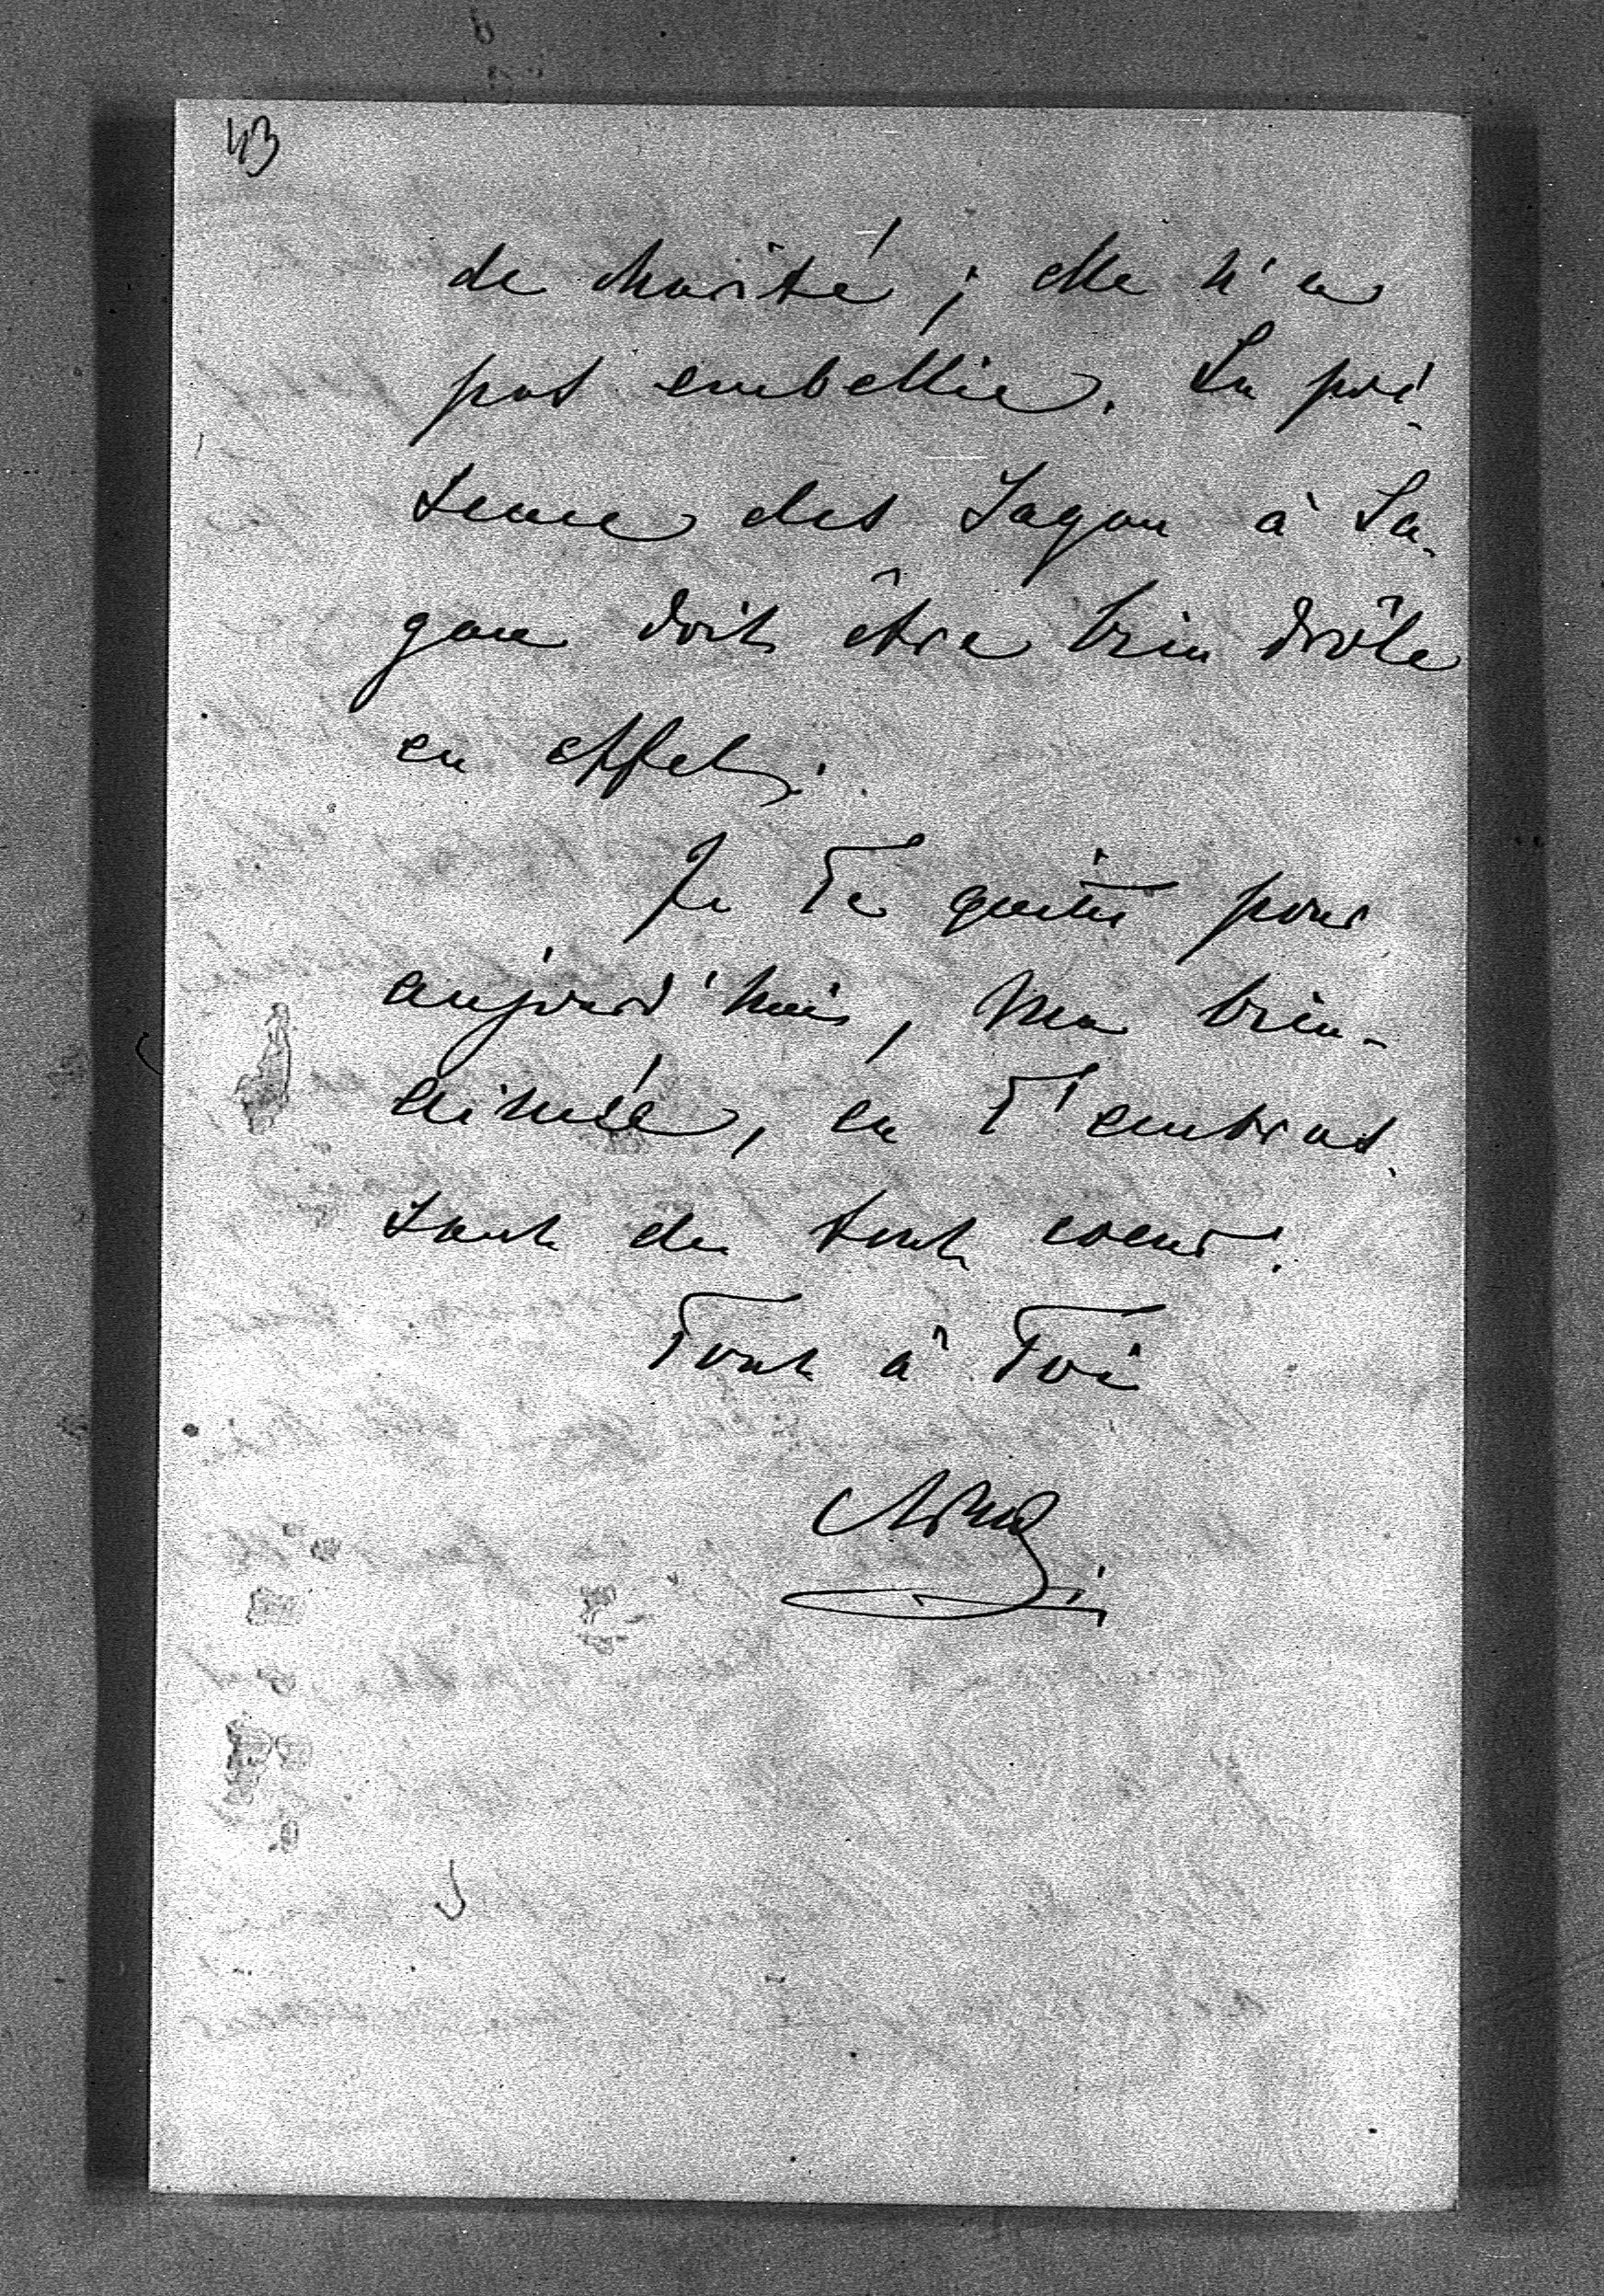 43
de charité ; elle n'a
pas embellie. La pré-
sence des Sagan à Sa-
gan doit être bien drôle
en effet.
Je Te quitte pour
aujourd'hui, ma bien-
aimée, en T'embras-
sant de tout coeur.
Tout à Toi